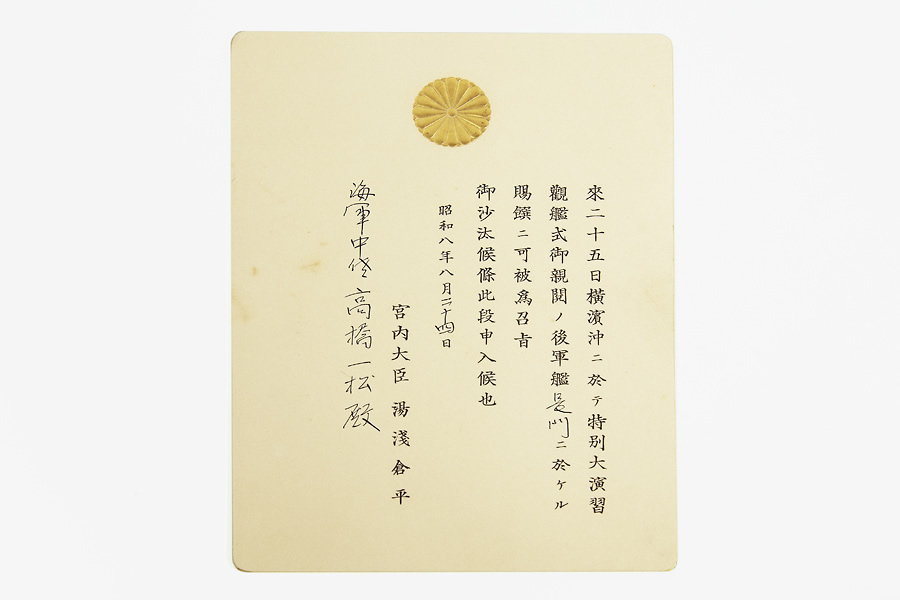 來二十五日橫濱沖ニ於テ特別大演習
觀艦式御親閱ノ後軍艦長門ニ於ケル
賜饌ニ可被爲召旨
御沙汰候條此段申入候也
昭和八年八月二十四日
宮内大臣 湯淺倉平
海軍中佐高橋一松殿